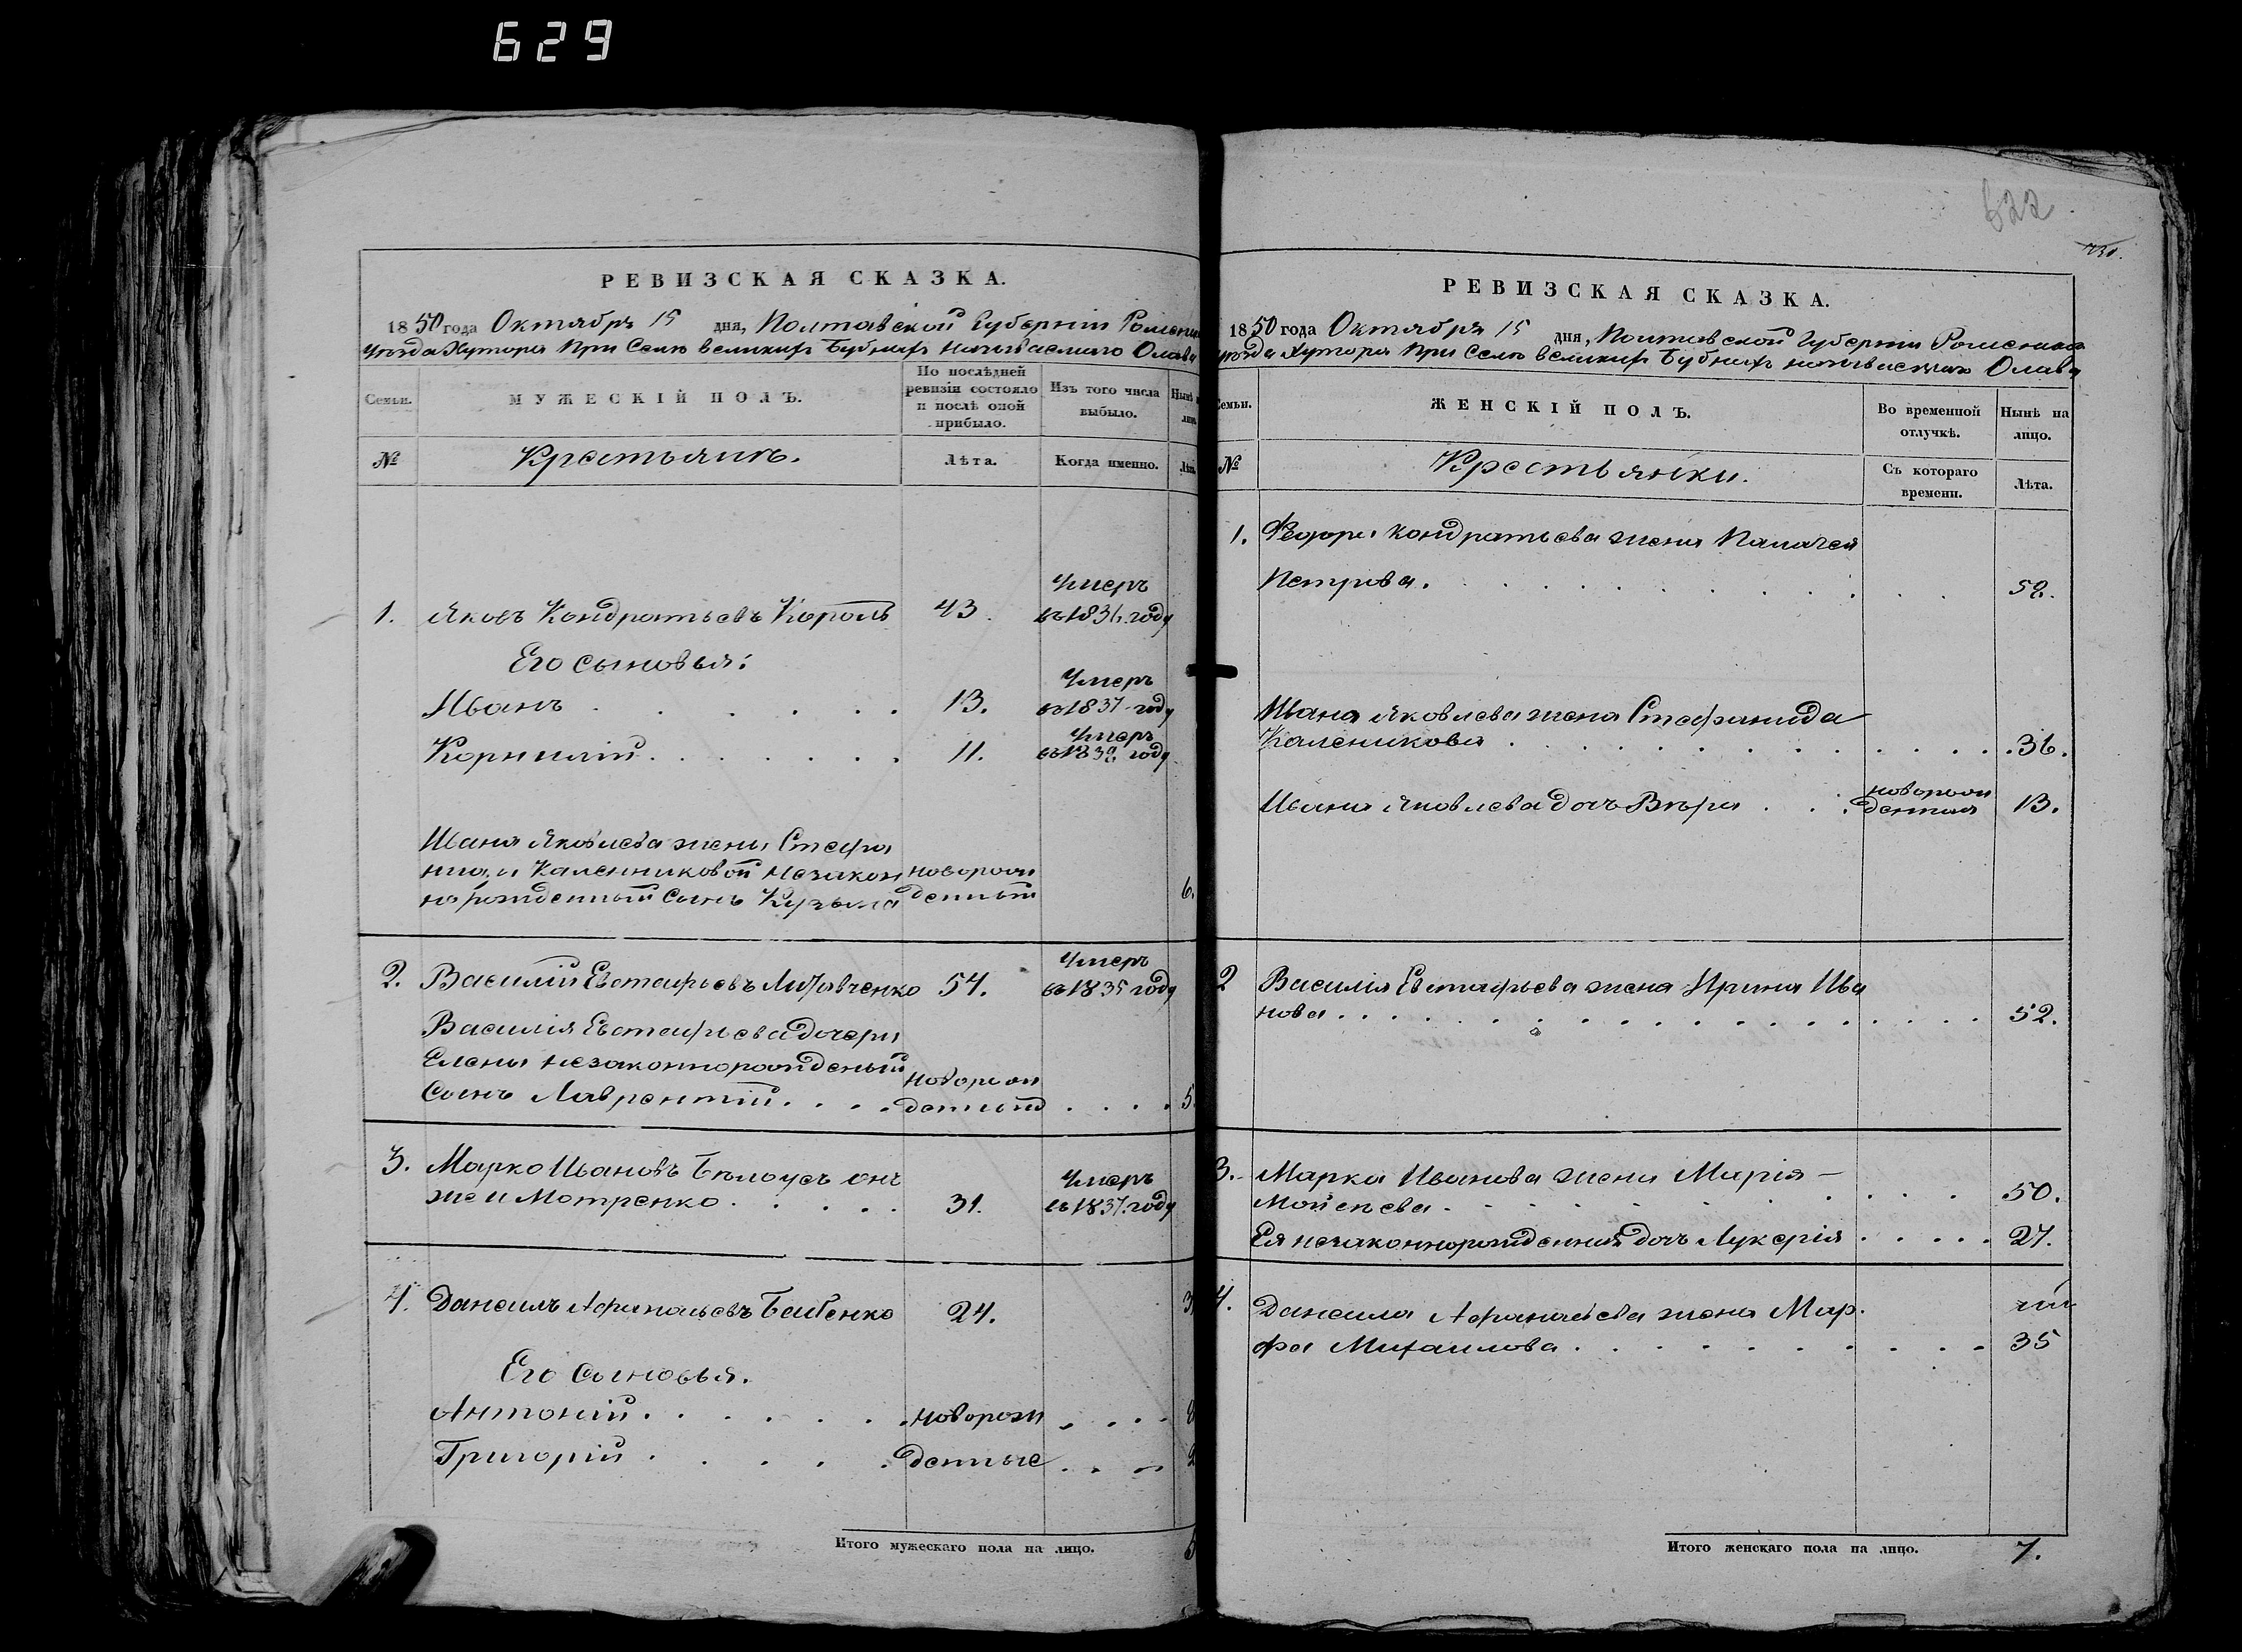 629
622
РЕВИЗСКАЯ СКАЗКА.
1850 года Октября 15 дня, Полтавской Губерніи Роменск
уезда Хутора при Селѣ великихъ Бубнахъ называемаго
Семьи.
МУЖЕСКІЙ ПОЛЪ.
По послѣдней ревизіи состояло и послѣ оной прибыло.
Изъ того числа выбыло.
Нынѣ
№
Крестьянъ.
Лѣта.
Когда именно.
1. Яковъ Кондратьевъ Король 43. Умеръ въ 1836 году
Его сыновья:
Иванъ 13. Умеръ въ 1837 году
Корнилій 11. Умеръ году
Ивана Яковлева жены Стефа
ниды Калениковой незакон новорож
норожденный сынъ Кузьма денный 6.
2. Василий Евстафьевъ 54. Умеръ въ 1835 году
Василія Евстафьева дочери
Елены незаконнорожденый
Сынъ Лаврентій новорож денный 5
3. Марко Ивановъ Бѣлоусъ онъ
же и Мотренко 31. Умеръ въ 1837 году
4. Даниилъ Афанасьевъ Бабенко 24. 3
Его Сыновья.
Антоній новорож
Григорій денные 2
Итого мужескаго пола на лицо.
РЕВИЗСКАЯ СКАЗКА.
1850 года Октября 15 дня, Полтавской Губерніи Роменска
уезда Хутора при Селѣ великихъ Бубнахъ называемаго
Семьи.
ЖЕНСКІЙ ПОЛЪ.
Во временной отлучкѣ.
Нынѣ на лицо.
№
Крестьянки.
Съ котораго времени.
Лѣта.
1. Кондратьева жена Палагея
Петрова. 52.
Ивана Яковлева жена Стефанида
Каленикова 36.
Ивана Яковлева дочь Вѣра новорож денная 13.
2 Василія Евстафьева жена Ирина Ива
нова 52.
3. Марка Иванова жена Марія
Мойсеева 50.
Ея незаконнорожденная дочь Лукерія 27.
4. Даниила Афанасьева жена Мар
фа Михаилова 35
Итого женскаго пола на лицо. 7.